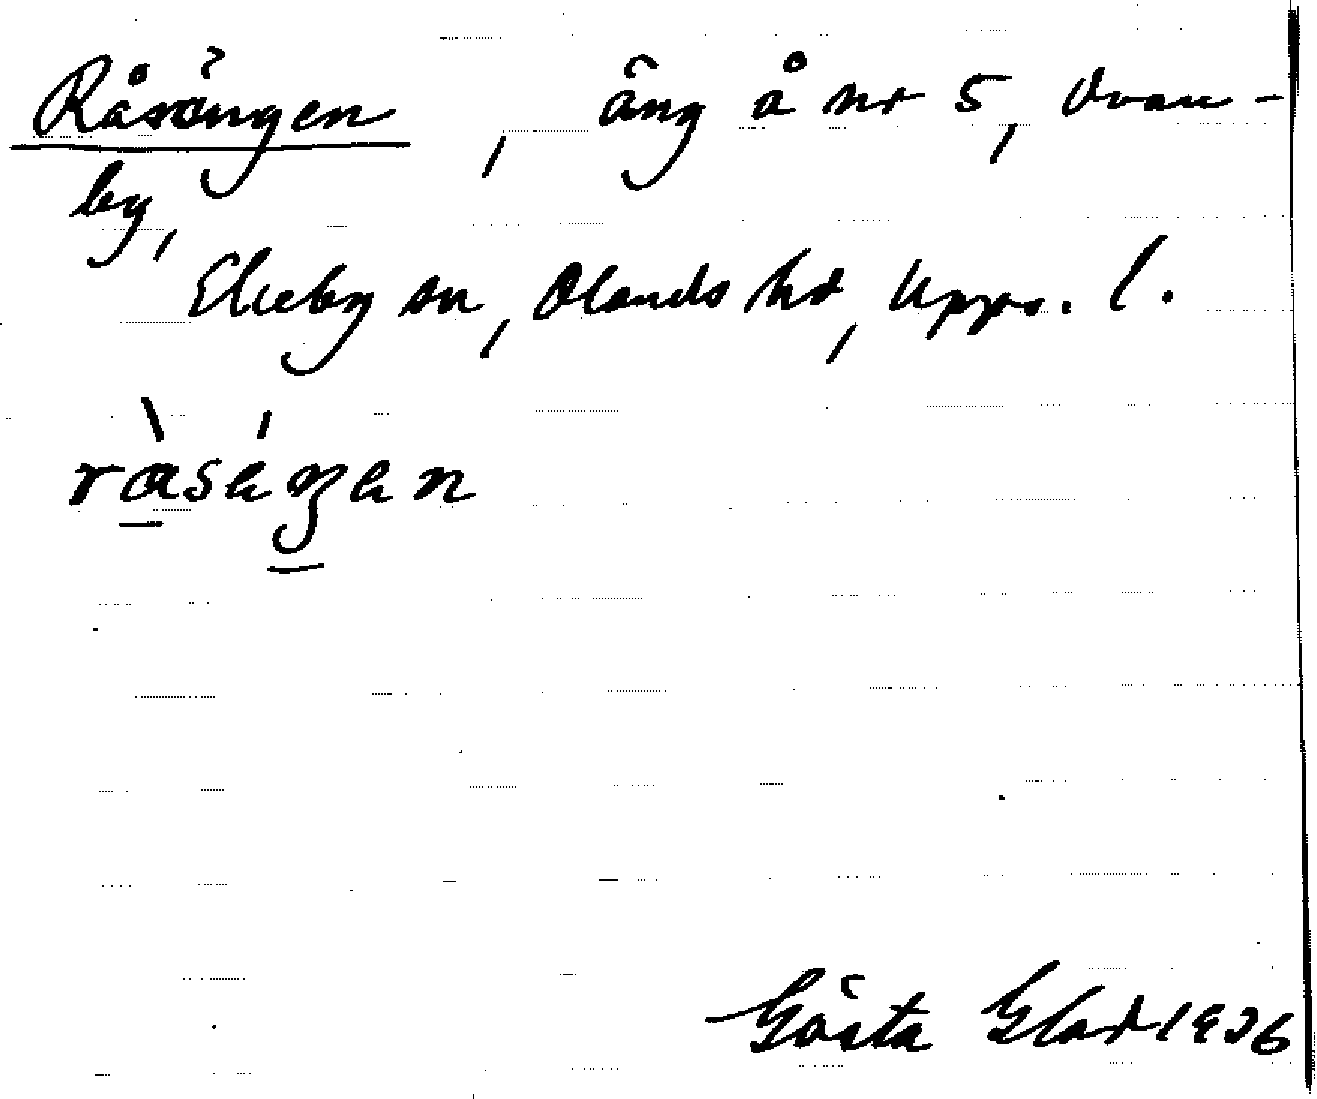 Råsängen, äng å nr 5, Ovan-
by,
Ekeby sn, Olands hd, Upps. l.
ràsáŋen
Gösta Glad 1936